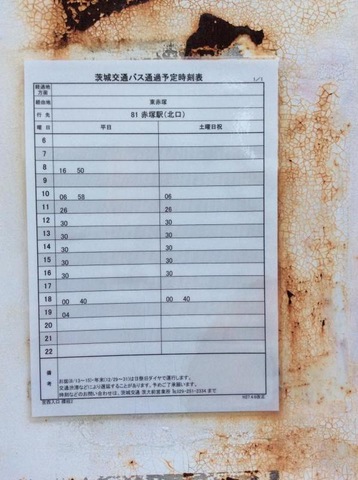 茨城交通バス通過予定時刻表
1/1
経過地
方面
経由地 東赤塚
行先 81 赤塚駅(北口)
曜日 平日 土曜日祝
6
7
8 16 50
9
10 06 58 06
11 26 26
12 30 30
13 30 30
14 30 30
15 30 30
16 30 30
17
18 00 40 00 40
19 04
20
21
22
備考
交通渋滞などにより遅延することがあります。予めご了承願います。
時刻などのお問い合わせは、茨城交通 茨大前営業所 ℡029-251-2334 まで